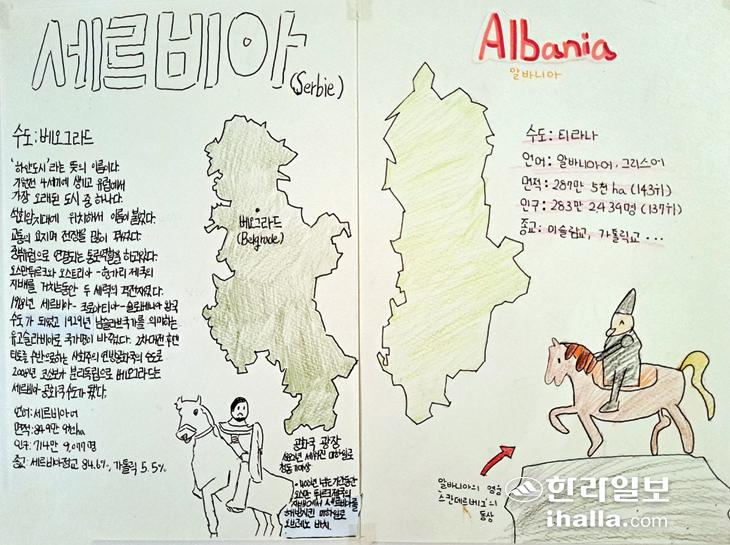 세르비아
(Serbie)
수도: 베오그라드
'하얀도시'라는 뜻의 이름이다.
기원전 4세기에 생기고 유럽에서
가장 오래된 도시 중 하나다.
석회암지대에 위치해서 이름이 붙었다.
교통의 요지며 전쟁을 많이 겪었다.
중부유럽으로 연결되는 통로역할을 하고있다.
오스만튀르크와 오스트리아-헝가리 제국의
지배를 거치는동안 두 세력의 격전지였다.
1918년 세르비아-크로아티아-슬로베니아 왕국
수도가 되었고 1929년 남슬라브국가를 의미하는
유고슬라비아로 국가명이 바뀌었다. 2차대전 후엔
티토를 수반으로하는 사회주의 연방공화국 수도로
2008년 코소보가 분리독립으로 베오그라드는
세르비아 공화국수도가 됐다.
언어: 세르비아어
면적: 849만 9천ha
인구: 714만 9,077명
종교: 세르비아정교 84.6%, 가톨릭 5.5%
베오그라드
(Belgrade)
공화국 광장
1882년 세워진 미하일로
청동기마상
Albania
알바니아
수도: 티라나
언어: 알바니아어, 그리스어
면적: 287만 5천ha (143위)
인구: 283만 2439명 (137위)
종교: 이슬람교, 가톨릭교 ...
알바니아의 영웅
스칸데르베그의
동상
한라일보
ihalla.com